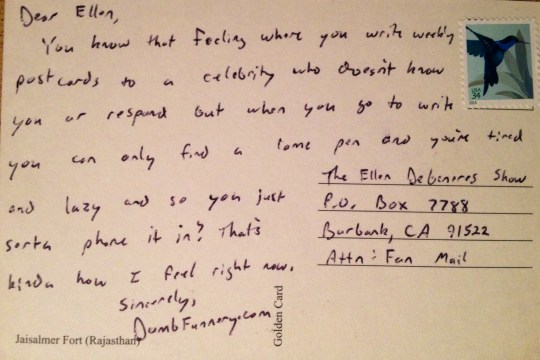 Dear Ellen,
You know that feeling where you write weekly
postcards to a celebrity who doesn't know
you or respond but when you go to write
you can only find a lame pen and you're tired
and lazy and so you just
sorta phone it in? That's
kinda how I feel right now.
Sincerely,
DumbFunnery.com
USA
34
The Ellen DeGeneres Show
P.O. Box 7788
Burbank, CA 91522
Attn: Fan Mail
Golden Card
Jaisalmer Fort (Rajasthan)